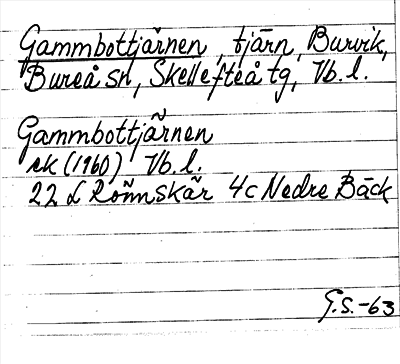 Gammbottjärnen, tjärn, Burvik,
Bureå sn, Skellefteå tg, Vb. l.
Gammbottjärnen
rk (1960) Vb. l.
22 L Rönnskär 4c Nedre Bäck
G.S.-63